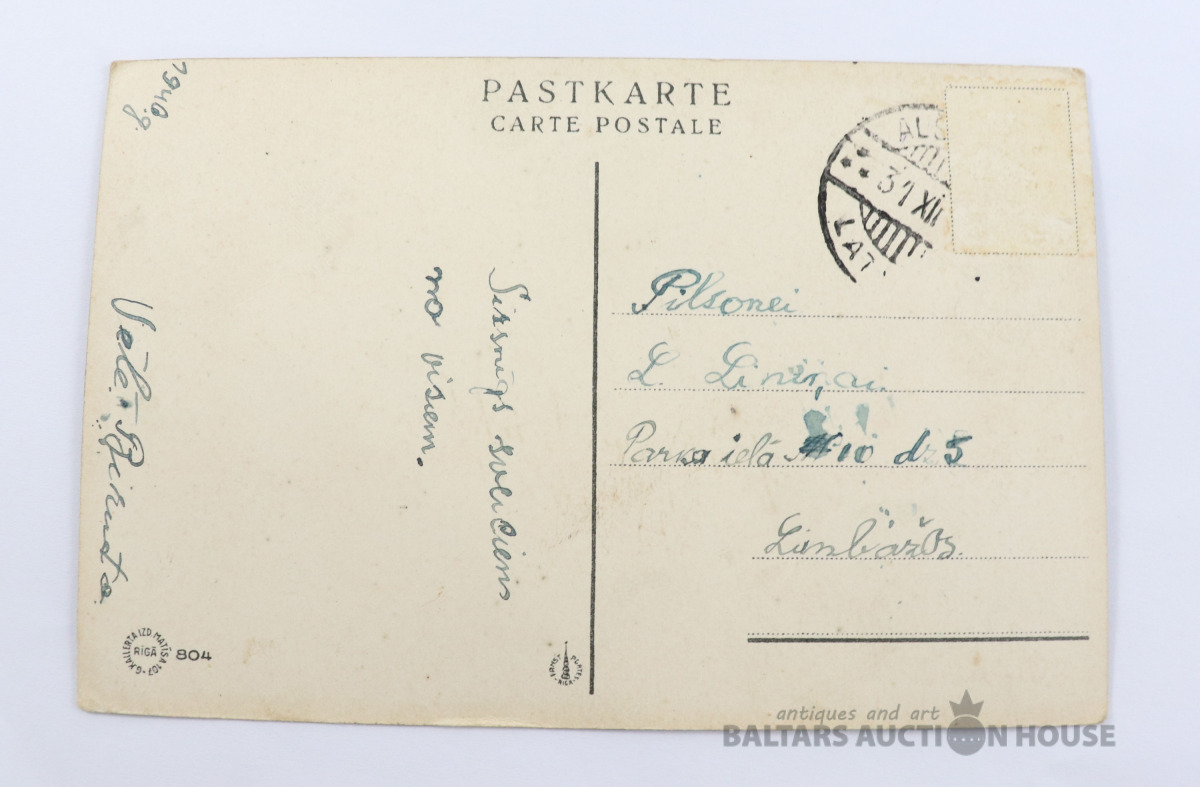 1940.g.
PASTKARTE
CARTE POSTALE
ALS
31 XII
LAT
Sirsnīgs sveiciens
no visiem.
Vēlē - Biruta
Pilsonei
L. Liniņai.
Parka ielā № 10 dz 5
Limbāžōs.
G. KALLERTA IZD. MATĪSA 107
RĪGĀ
804
RIGA
antiques and art
BALTARS AUCTION HOUSE